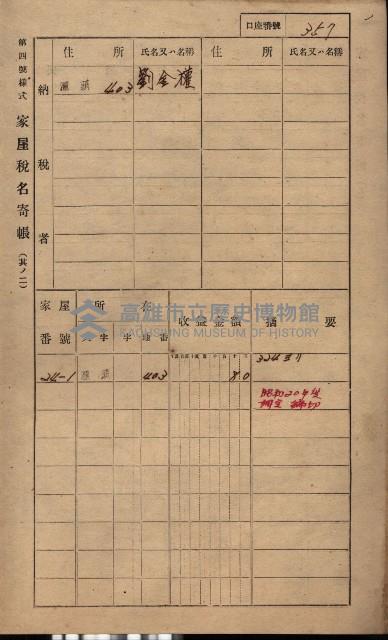 口座番號 357
第四號樣式 家屋稅名寄帳 (其ノ二)
納稅者
住所 氏名又ハ名稱 住所 氏名又ハ名稱
403 劉金權
家屋番號 所在 收益金額 摘要
字 字 地番
324ヨリ
24-1 403 80
昭和20年度
高雄市立歷史博物館
KAOHSIUNG MUSEUM OF HISTORY